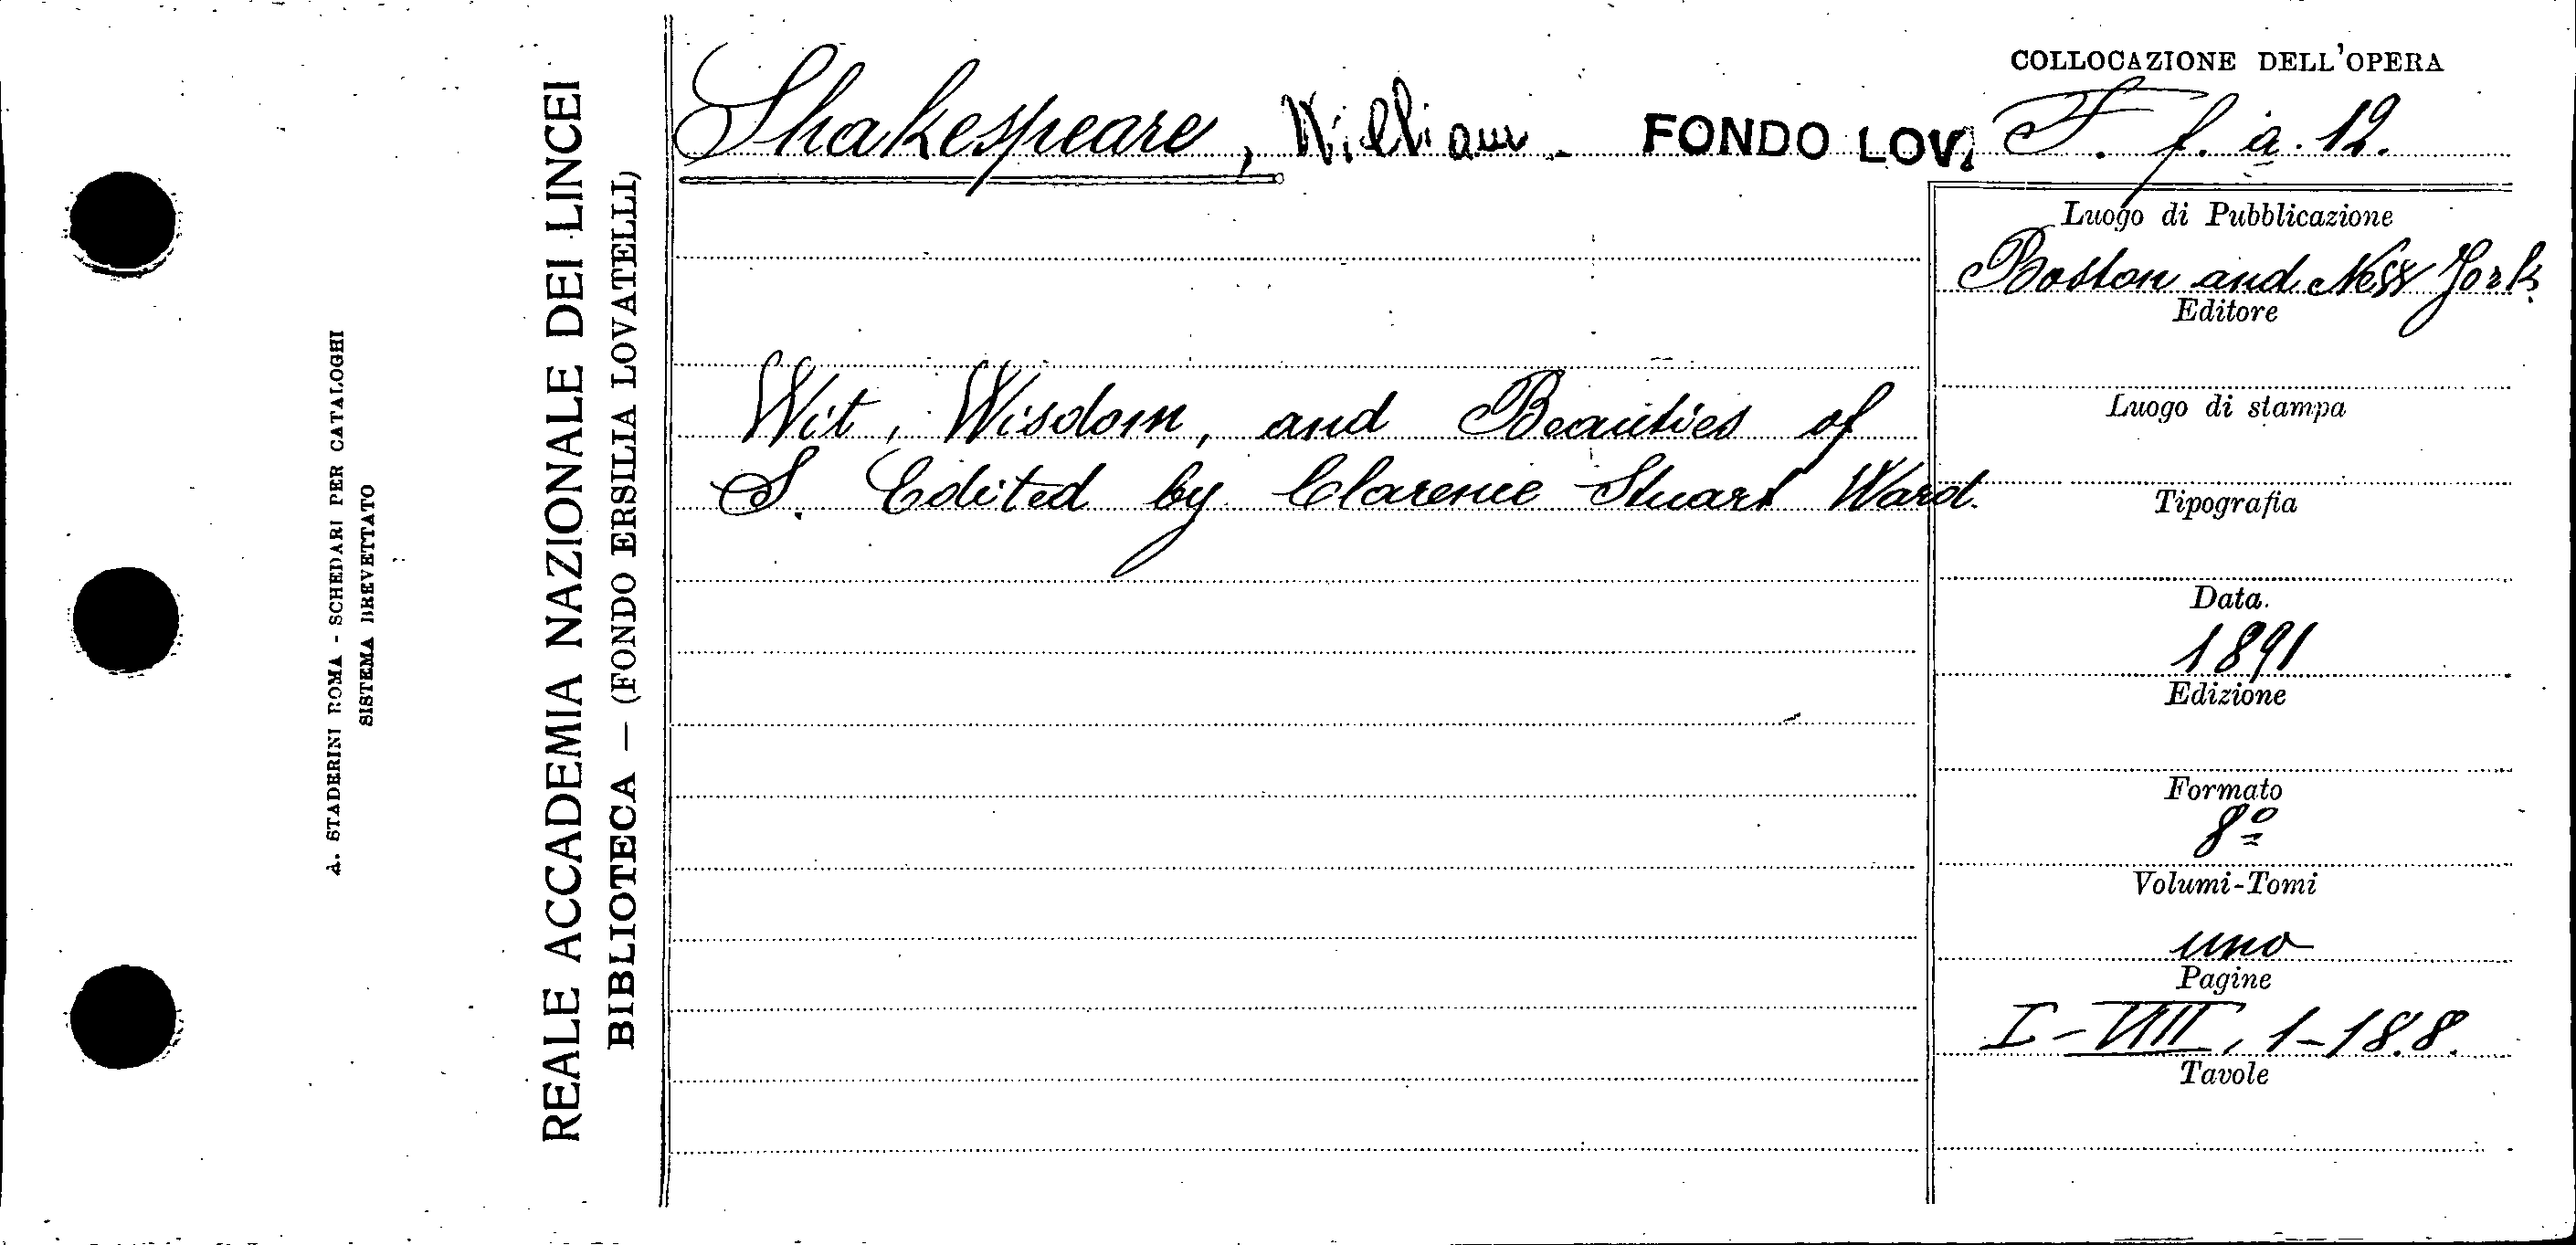 A. STADERINI ROMA - SCHEDARI PER CATALOGHI
SISTEMA BREVETTATO
REALE ACCADEMIA NAZIONALE DEI LINCEI
BIBLIOTECA — (FONDO ERSILIA LOVATELLI)
COLLOCAZIONE DELL'OPERA
Shakespeare, William. FONDO LOV. F. f. a. 12.
Wit, Wisdom, and Beauties of
S. Edited by Clarence Stuart Ward.
Luogo di Pubblicazione
Boston and New York
Editore
Luogo di stampa
Tipografia
Data.
1891
Edizione
Formato
8º
Volumi-Tomi
uno
Pagine
I-VIII, 1-188.
Tavole